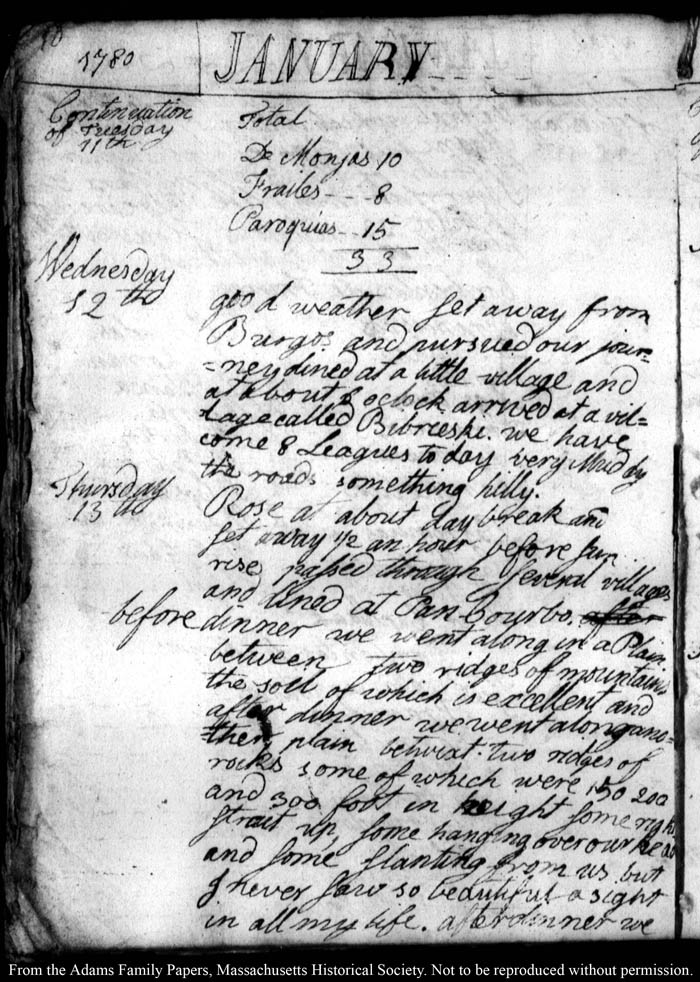 10
1780
JANUARY
Continuation
of Tuesday
11th
Total
De Monjas 10
Frailes 8
Paroquias 15
33
Wednesday
12th
good weather set away from
Burgos and pursued our jour=
=ney dined at a little village and
at about 8 oclock arrived at a vil=
lage called Bibrieske. we have
come 8 Leagues to day very Muddy
the roads something hilly.
Thursday
13th
Rose at about day break and
set away 1/2 an hour before sun
rise, passed through several villages
and dined at Pan-Courbo. after
before dinner we went along in a Plain
between two ridges of mountains
the soil of which is excellent and
after dinner we went along ano=
=ther plain betwixt two ridges of
rocks some of which were 150 200
and 300 foot in height some right
strait up, some hanging over our head
and some slanting from us but
I never saw so beautiful a sight
in all my life. after dinner we
From the Adams Family Papers, Massachusetts Historical Society. Not to be reproduced without permission.